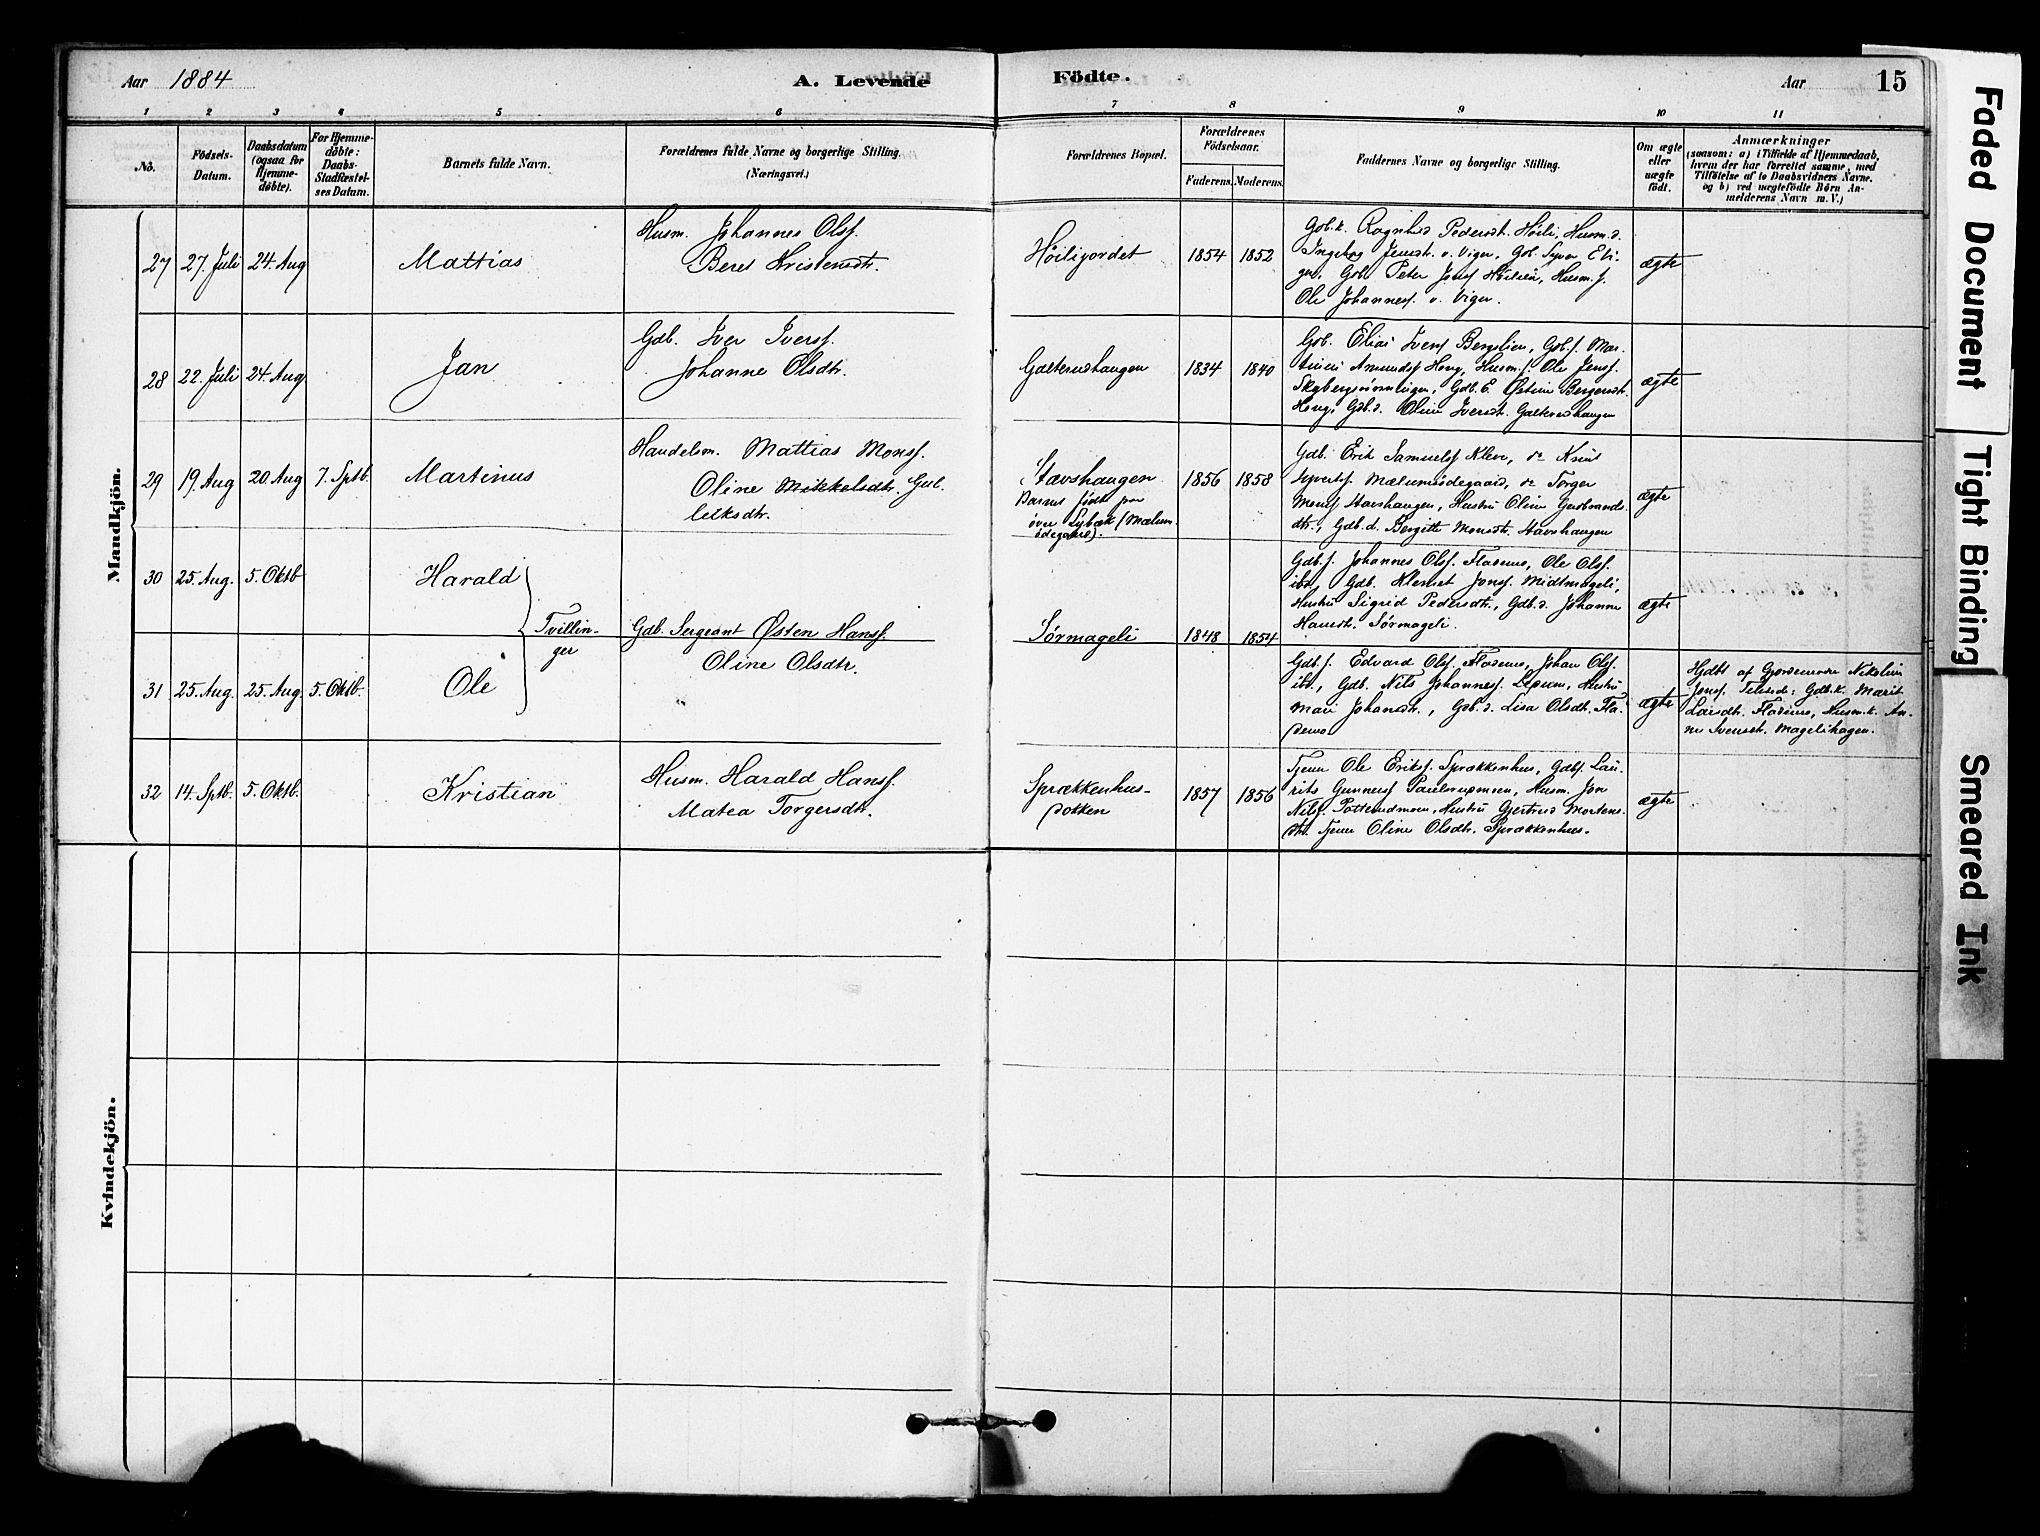 Aar 1884
A. Levende
Födte.
Aar
15
1 2 3 4 5 6 7 8 9 10 11
No.
Födsels-
Datum.
Daabsdatum
(ogsaa for
Hjemme-
döbte).
For Hjemme-
döbte:
Daabs-
Stadfæstel-
ses Datum.
Barnets fulde Navn.
Forældrenes fulde Navne og borgerlige Stilling.
(Næringsvei.)
Forældrenes Bopæl.
Forældrenes
Födselsaar.
Faderens. Moderens.
Faddernes Navne og borgerlige Stilling.
Om ægte
eller
uægte
födt.
Anmærkninger
(saasom: a) i Tilfælde af Hjemmedaab,
hvem der har forrettet samme, med
Tilföielse af to Daabsvidners Navne,
og b) ved uægtefödte Börn An-
melderens Navn m. V.)
Mandkjön.
27 27. Juli 24. Aug
Mattias
Husm. Johannes Olsf.
Beret Kristensdtr.
Höilijordet
1854 1852
Gdb.k. Ragnhild Pedersdt. Höili, Husm.d.
Ingeborg Jensdt. v. Viger, Gdb. Syver
Peter Jonsf Höilien, Husm.f.
Ole Johannesf. v. Viger.
ægte
28 22. Juli 24. Aug
Jan
Gdb. Iver Iversf.
Johanne Olsdtr.
Gæterudhaugen
1834 1840
Gdb. Elias Svensf Bergelien, Gdb.f. Mar-
tinius Amundsf Haug, Husm.f. Ole Jensf.
Gdb.E. Østine Bergersdtr.
Haug, Gdb.d. Oline Iversdt. Gæterudhaugen
ægte
29 19. Aug 20. Aug 7. Sptb.
Martinus
Handelsm. Mattias Monsf.
Oline Mikkelsdtr. Gul-
leiksdtr.
Stavshaugen
Barnet födt paa
övre Sybæk (Mælum-
ödegaard).
1856 1858
Gdb. Erik Samuelsf Kleve, do Knut
Syvertsf Mælumsödegaard, do Torger
Monsf Stavshaugen, Hustru Oline Gudbrands-
dtr., Gdb.d. Bergitte Monsdt. Stavshaugen
ægte
30 25. Aug. 5. Oktb
Harald
Tvillin-
ger
Gdb. Sergeant Østen Hansf.
Oline Olsdtr.
Sörmageli
1848 1854
Gdb.f. Johannes Olsf. Flademo, Ole Olsf.
ibd, Gdb. Klemet Jonsf. Midtmageli,
Hustru Sigrid Pedersdt., Gdb.d. Johanne
Hansdt. Sörmageli.
ægte
31 25. Aug. 25. Aug. 5. Oktb.
Ole
Gdb.f. Edvard Olsf. Flademo, Johan Olsf.
ibd., Gdb. Nils Johannesf. Hustru
Mari Johansdt., Gdb.d. Lisa Olsdt. Fla-
demo
ægte
Hjdbt af Gjordemodre Nikoline
Jonsf. Gdb.k. Marit
Larsdt. Flademo, Husm.k. An-
ne Svensdt. Magelihagen.
32 14. Sptb. 5. Oktb.
Kristian
Husm. Harald Hansf.
Matea Torgersdtr.
Sprækkenhus-
dokken
1857 1856
Tjener Ole Eriksf. Sprækkenhus, Gdbf. Lau-
rits Gunnersf Paulsrupmoen, Husm. Jon
Nilsf. Potterudmoen, Hustru Gjertrud Mortens-
dtr. Tjener Oline Olsdtr. Sprækkenhus.
ægte
Kvindekjön.
Faded Document
Tight Binding
Smeared Ink